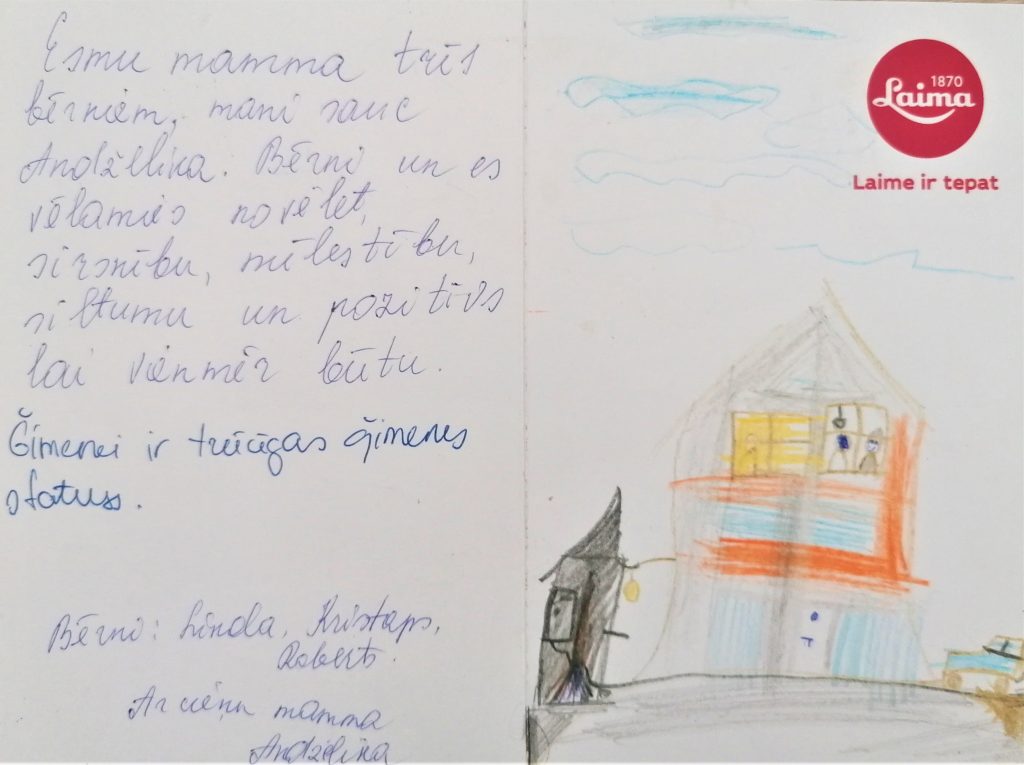 Esmu mamma trīs
bērniem, mani sauc
Andželika. Bērni un es
vēlamies novēlēt,
sirsnību, mīlestību,
siltumu un pozitīvs
lai vienmēr būtu.
Ģimenei ir trūcīgas ģimenes
statuss.
Bērni: Linda, Kristaps,
Roberts.
Ar cieņu mamma
Andželika
1870
Laima
Laime ir tepat